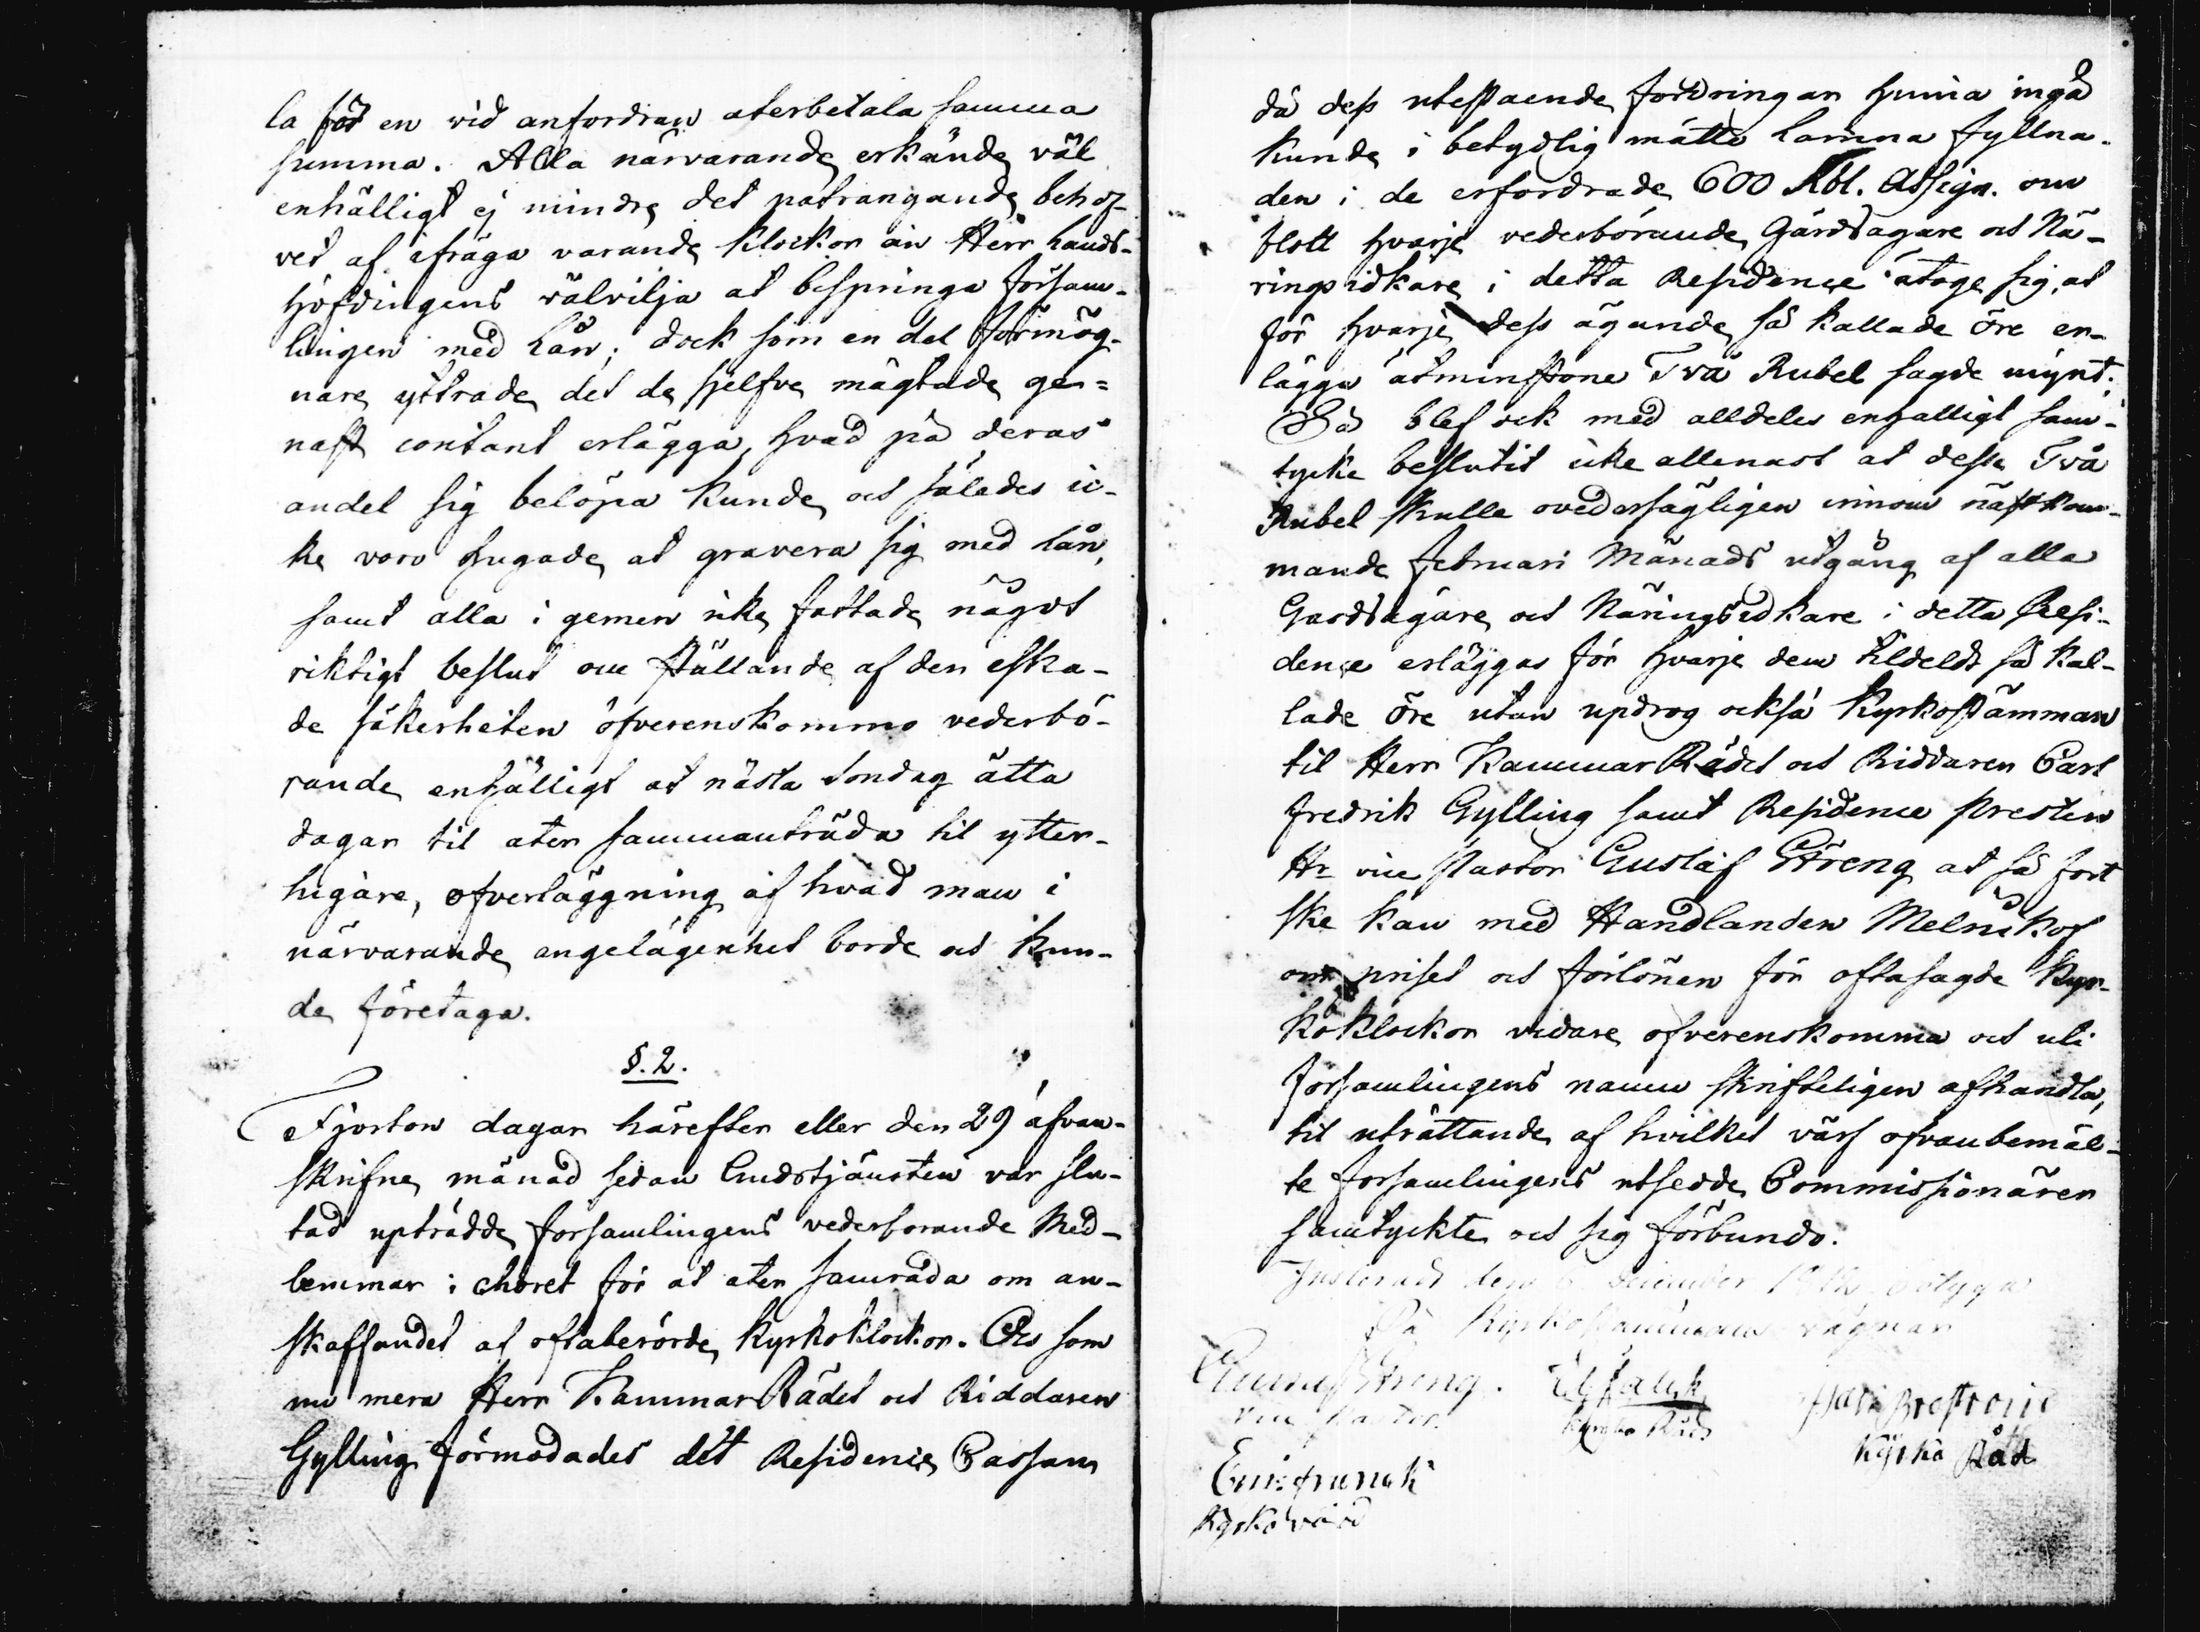 la för en vid anfordran återbetala samma
summa. Alla närvarande erkände väl
enhälligt ej mindre det påtrangande behof-
vet af ifråga varande klockor än Herr Lands-
höfdingens välvilja at bespringa församm-
lingen med Lån; dock som en del förmög-
nare yttrade det de sjelfve mägtade ge-
nast contant erlägga, hvad på deras
andel sig belöpa kunde, och således ic-
ke voro hugade, at gravera sig med Lån,
samt alla i gemen icke fattade något
riktigt beslut om ställande af den eska-
de säkerheten öfverenskommo vederbö-
rande enhälligt at nästa Sondag åtta
dagar til åter sammanträda til ytter-
ligare, öfverläggning af hvad man i
närvarande angelägenhet borde och kun-
de företaga.
§. 2.
Fjorton dagar härefter eller den 29 ofvan-
skrifne månad sedan Gudstjänsten var slu-
tad uptrådde församlingens vederbörande Med-
lemmar i choret för at åter samråda om an-
skaffandet af oftaberörde kyrkoklockor. Och som
nu mera Herr KammarRådet och Riddaren
Gylling förmodades det Residence Cassans
då dess utestående fordringar hunnit ingå
kunde i betydlig måtto lämna fyllna-
den i de erfordrade 600 Rbl. Assign. om
blott hvarje vederbörande Gårdsägare och Nä-
ringsidkare i detta Residence åtoge sig, at
för hvarje dess ägande så kallade öre er-
lägga åtminstone Två Rubel sagde mynt;
Så blef ock med alldeles enhälligt sam-
tycke beslutit icke allenast at desse Två
Rubel skulle ovedersägligen innom nästkom-
mande Februari Månads utgång af alla
Gårdsägare och Näringsidkare i detta Resi-
dence erläggas för hvarje dem tildelt så kal-
lade öre utan updrog också Kyrkostämman
til Herr KammarRådet och Riddaren Carl
Fredrik Gylling samt Residence Presten
Hr vice Pastor Gustaf Streng at så fort
ske kan med Handlanden Melnikof
om priset och förlönen för oftasagde Kyr-
koklockor vidare öfverenskomma och uti
församlingens namn skrifteligen afhandla,
til uträttande af hvilket värf ofvanbemäl-
te församlingens utsedde Commissionärer
samtyckte och sig förbundo.
Justerad den December
På Kyrkostämmans vägnar
Streng.
vice Pastor. Kyrko Råd
Kyrko Råd
Kyrkovärd